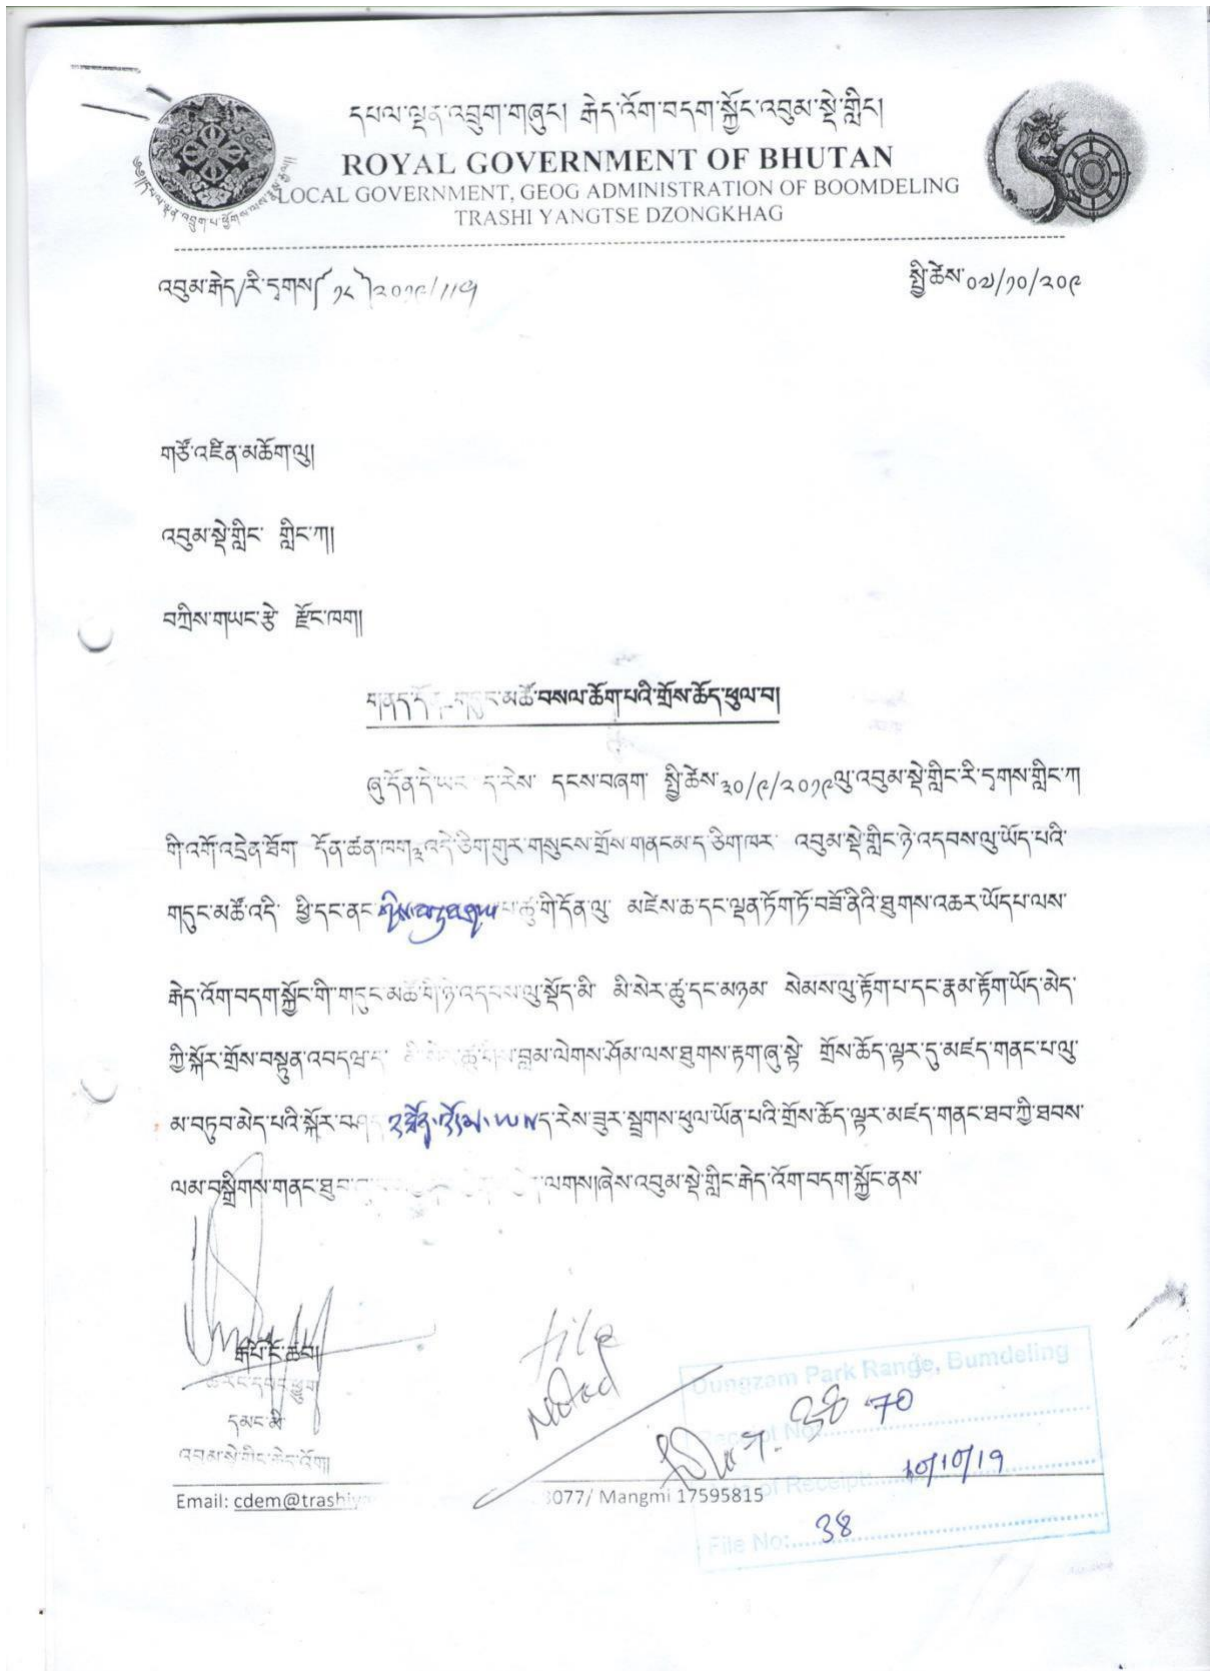 དཔལ་ལྡན་འབྲུག་གཞུང། རྒེད་འོག་བདག་སྐྱོང་འབུམ་སྡེ་གླིང།
ROYAL GOVERNMENT OF BHUTAN
LOCAL GOVERNMENT, GEOG ADMINISTRATION OF BOOMDELING
TRASHI YANGTSE DZONGKHAG
འབུམ་རྒེད/རི་དྭགས༼ ༡༨ ༽༢༠༡༩/
སྤྱི་ཚེས་༠༧/༡༠/༢༠༩
གཙོ་འཛིན་མཆོག་ལུ།
འབུམ་སྡེ་གླིང་ གླིང་ཀ།
བཀྲིས་གཡང་རྩེ་ རྫོང་ཁག།
གནད་དོན་ གདུང་མཚོ་བསལ་ཆོག་པའི་གྲོས་ཆོད་ཕུལ་བ།
ཞུ་དོན་དེ་ཡང་ ད་རེས་ དངས་བཞག སྤྱི་ཚེས་༣༠/༩/༢༠༡༩ལུ་འབུམ་སྡེ་གླིང་རི་དྭགས་གླིང་ཀ
གི་འགོ་འདྲེན་ཐོག དོན་ཚན་ཁག༣འདེ་ཅིག་གུར་གསུངས་གྲོས་གནངམ་ད་ཅིག་ཁར་ འབུམ་སྡེ་གླིང་ཉེ་འདབས་ལུ་ཡོད་པའི་
གདུང་མཚོ་འདི་ ཕྱི་དང་ནང་ པ་ཚུ་གི་དོན་ལུ་ མཛེས་ཆ་དང་ལྡན་ཏོག་ཏོ་བཟོ་ནིའི་ཐུགས་འཆར་ཡོདཔ་ལས་
རྒེད་འོག་བདག་སྐྱོང་གི་གདུང་མཚོ་གི་ཉེ་འདབས་ལུ་སྡོད་མི་ མི་སེར་ཚུ་དང་མཉམ་ སེམས་ལུ་རྟོག་པ་དང་རྣམ་རྟོག་ཡོད་མེད་
ཀྱི་སྐོར་གྲོས་བསྟུན་འབདཝ་ད་ མི་སེར་ཚུ་གིས་བླམ་ལེགས་ཤོམ་ལས་ཐུགས་རྟག་ཞུ་སྟེ་ གྲོས་ཆོད་ལྟར་དུ་མཛད་གནང་པ་ལུ་
མ་བཏུབ་མེད་པའི་སྐོར་བཤད་ ད་རེས་ཟུར་སྦྲགས་ཕུལ་ཡོན་པའི་གྲོས་ཆོད་ལྟར་མཛད་གནང་ཐབ་ཀྱི་ཐབས་
ལམ་བསྒྲིགས་གནང་ཐུབ་ ལགས།ཞེས་འབུམ་སྡེ་གླིང་རྒེད་འོག་བདག་སྐྱོང་ནས་
དམང་མི
འབུམ་སྡེ་གླིང་རྒེད་འོག།
file
Noted
Dungzam Park Range, Bumdeling
Receipt No: 70
Date of Receipt: 10/10/19
Email: cdem@trashiy 3077/ Mangmi 17595815
File No: 38